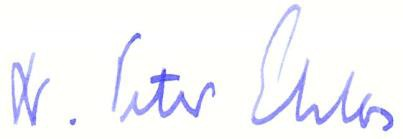 Dr. Peter Ehlers